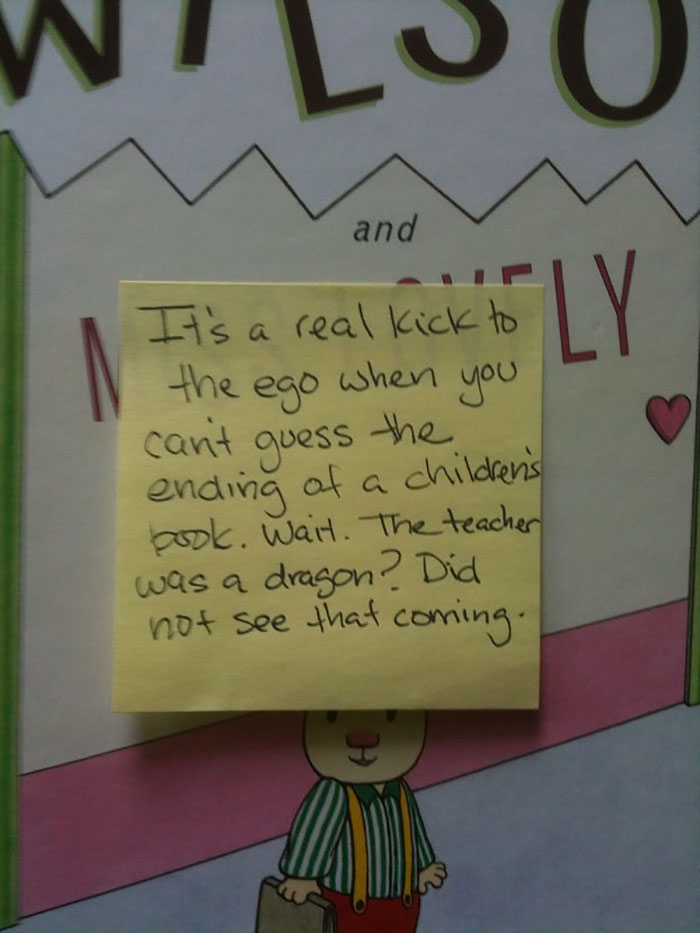 WILSO
and
M LOVELY
It's a real kick to
the ego when you
can't guess the
ending of a children's
book. Wait. The teacher
was a dragon? Did
not see that coming.